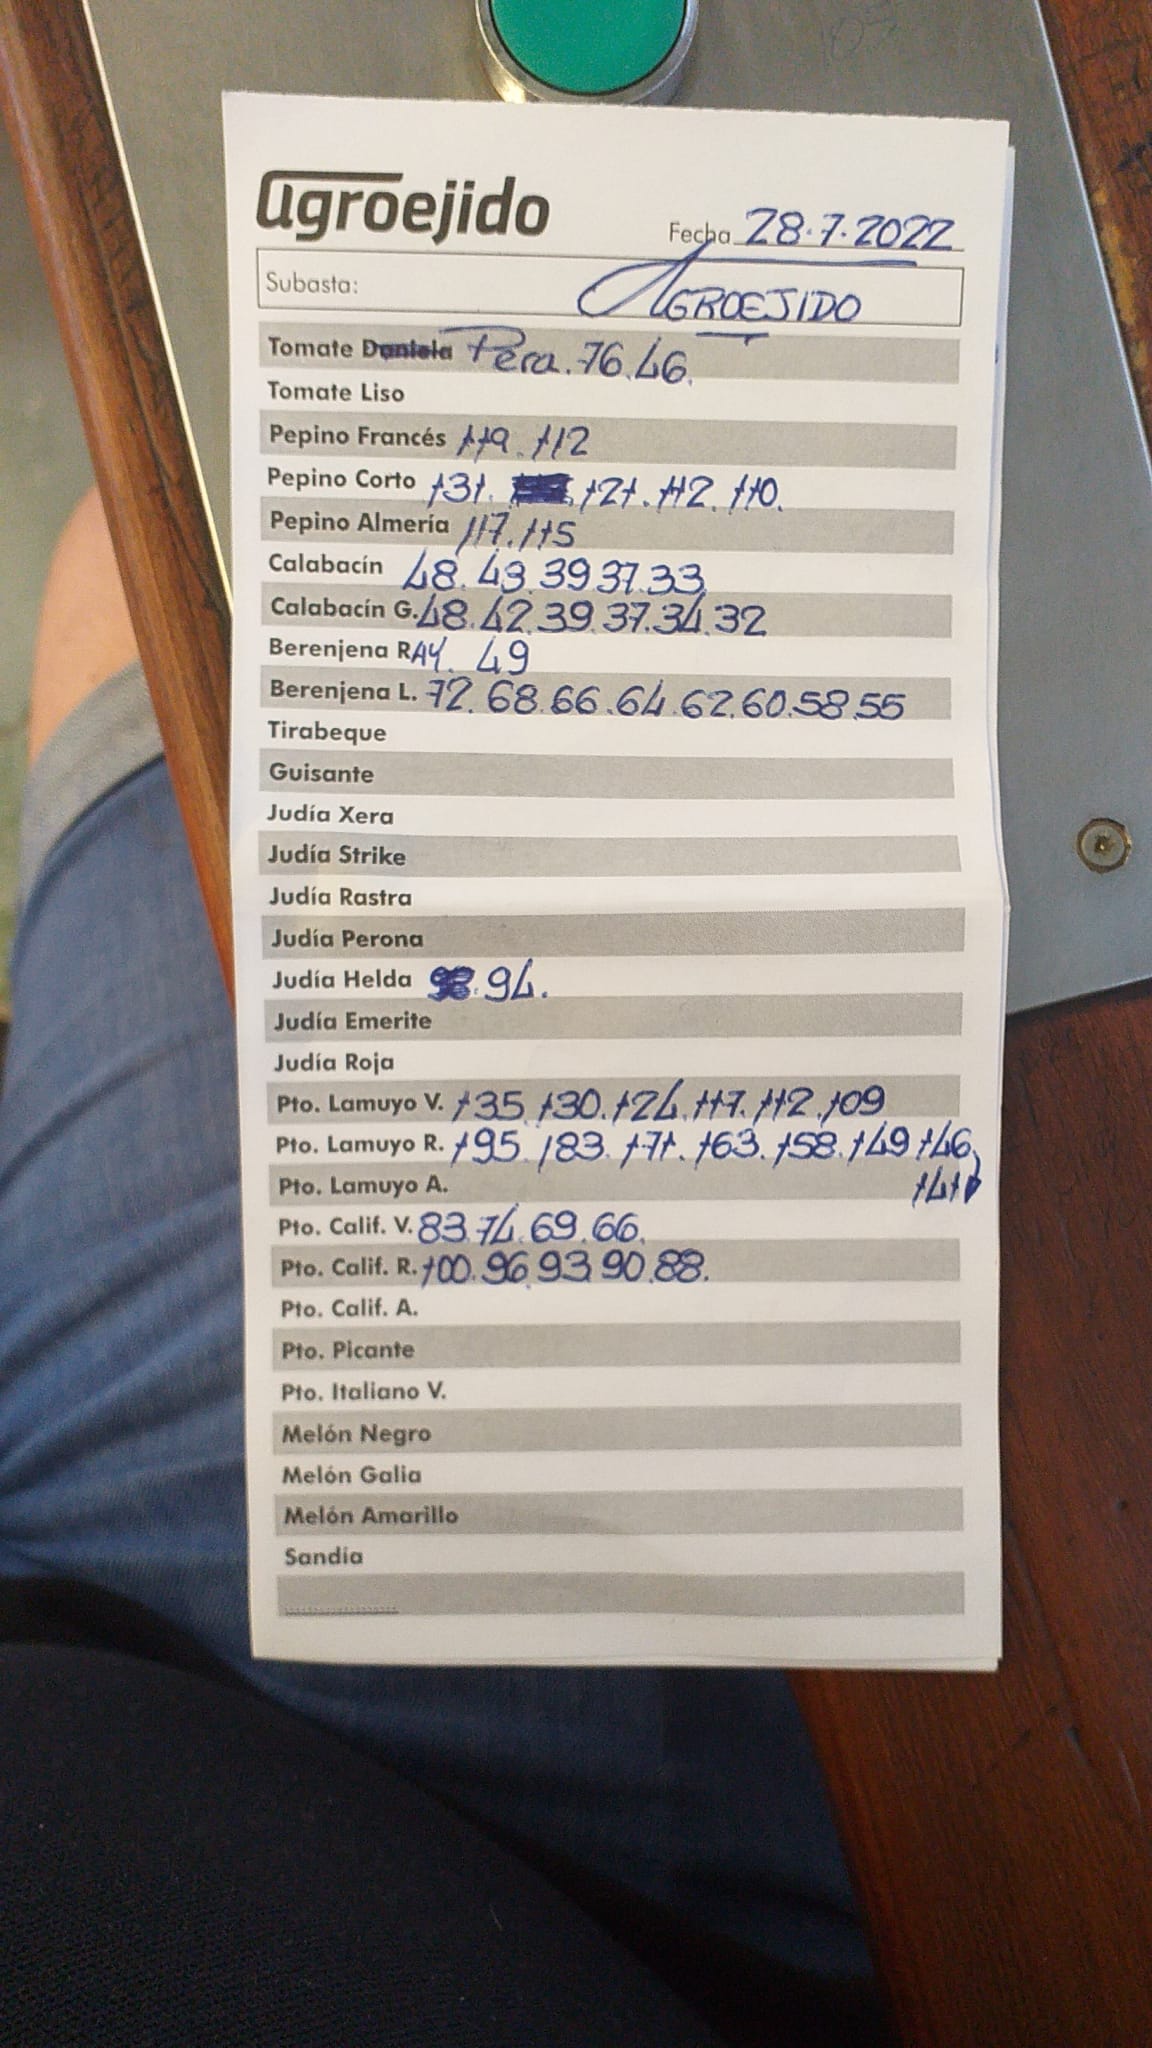 agroejido
Fecha 28.7.2022
Subasta: AGROEJIDO
Tomate Daniela Pera. 76. 46.
Tomate Liso
Pepino Francés 119. 112
Pepino Corto 131. 121. 112. 110.
Pepino Almería 117. 115
Calabacín 48. 43. 39 37. 33
Calabacín G. 48. 42. 39. 37. 34. 32
Berenjena RAY. 49
Berenjena L. 72. 68. 66. 64. 62. 60. 58. 55
Tirabeque
Guisante
Judía Xera
Judía Strike
Judía Rastra
Judía Perona
Judía Helda 94.
Judía Emerite
Judía Roja
Pto. Lamuyo V. 135. 130. 124. 117. 112. 109
Pto. Lamuyo R. 195. 183. 171. 163. 158. 149 146.
141
Pto. Lamuyo A.
Pto. Calif. V. 83. 74. 69. 66.
Pto. Calif. R. 100. 96. 93. 90. 88.
Pto. Calif. A.
Pto. Picante
Pto. Italiano V.
Melón Negro
Melón Galia
Melón Amarillo
Sandía